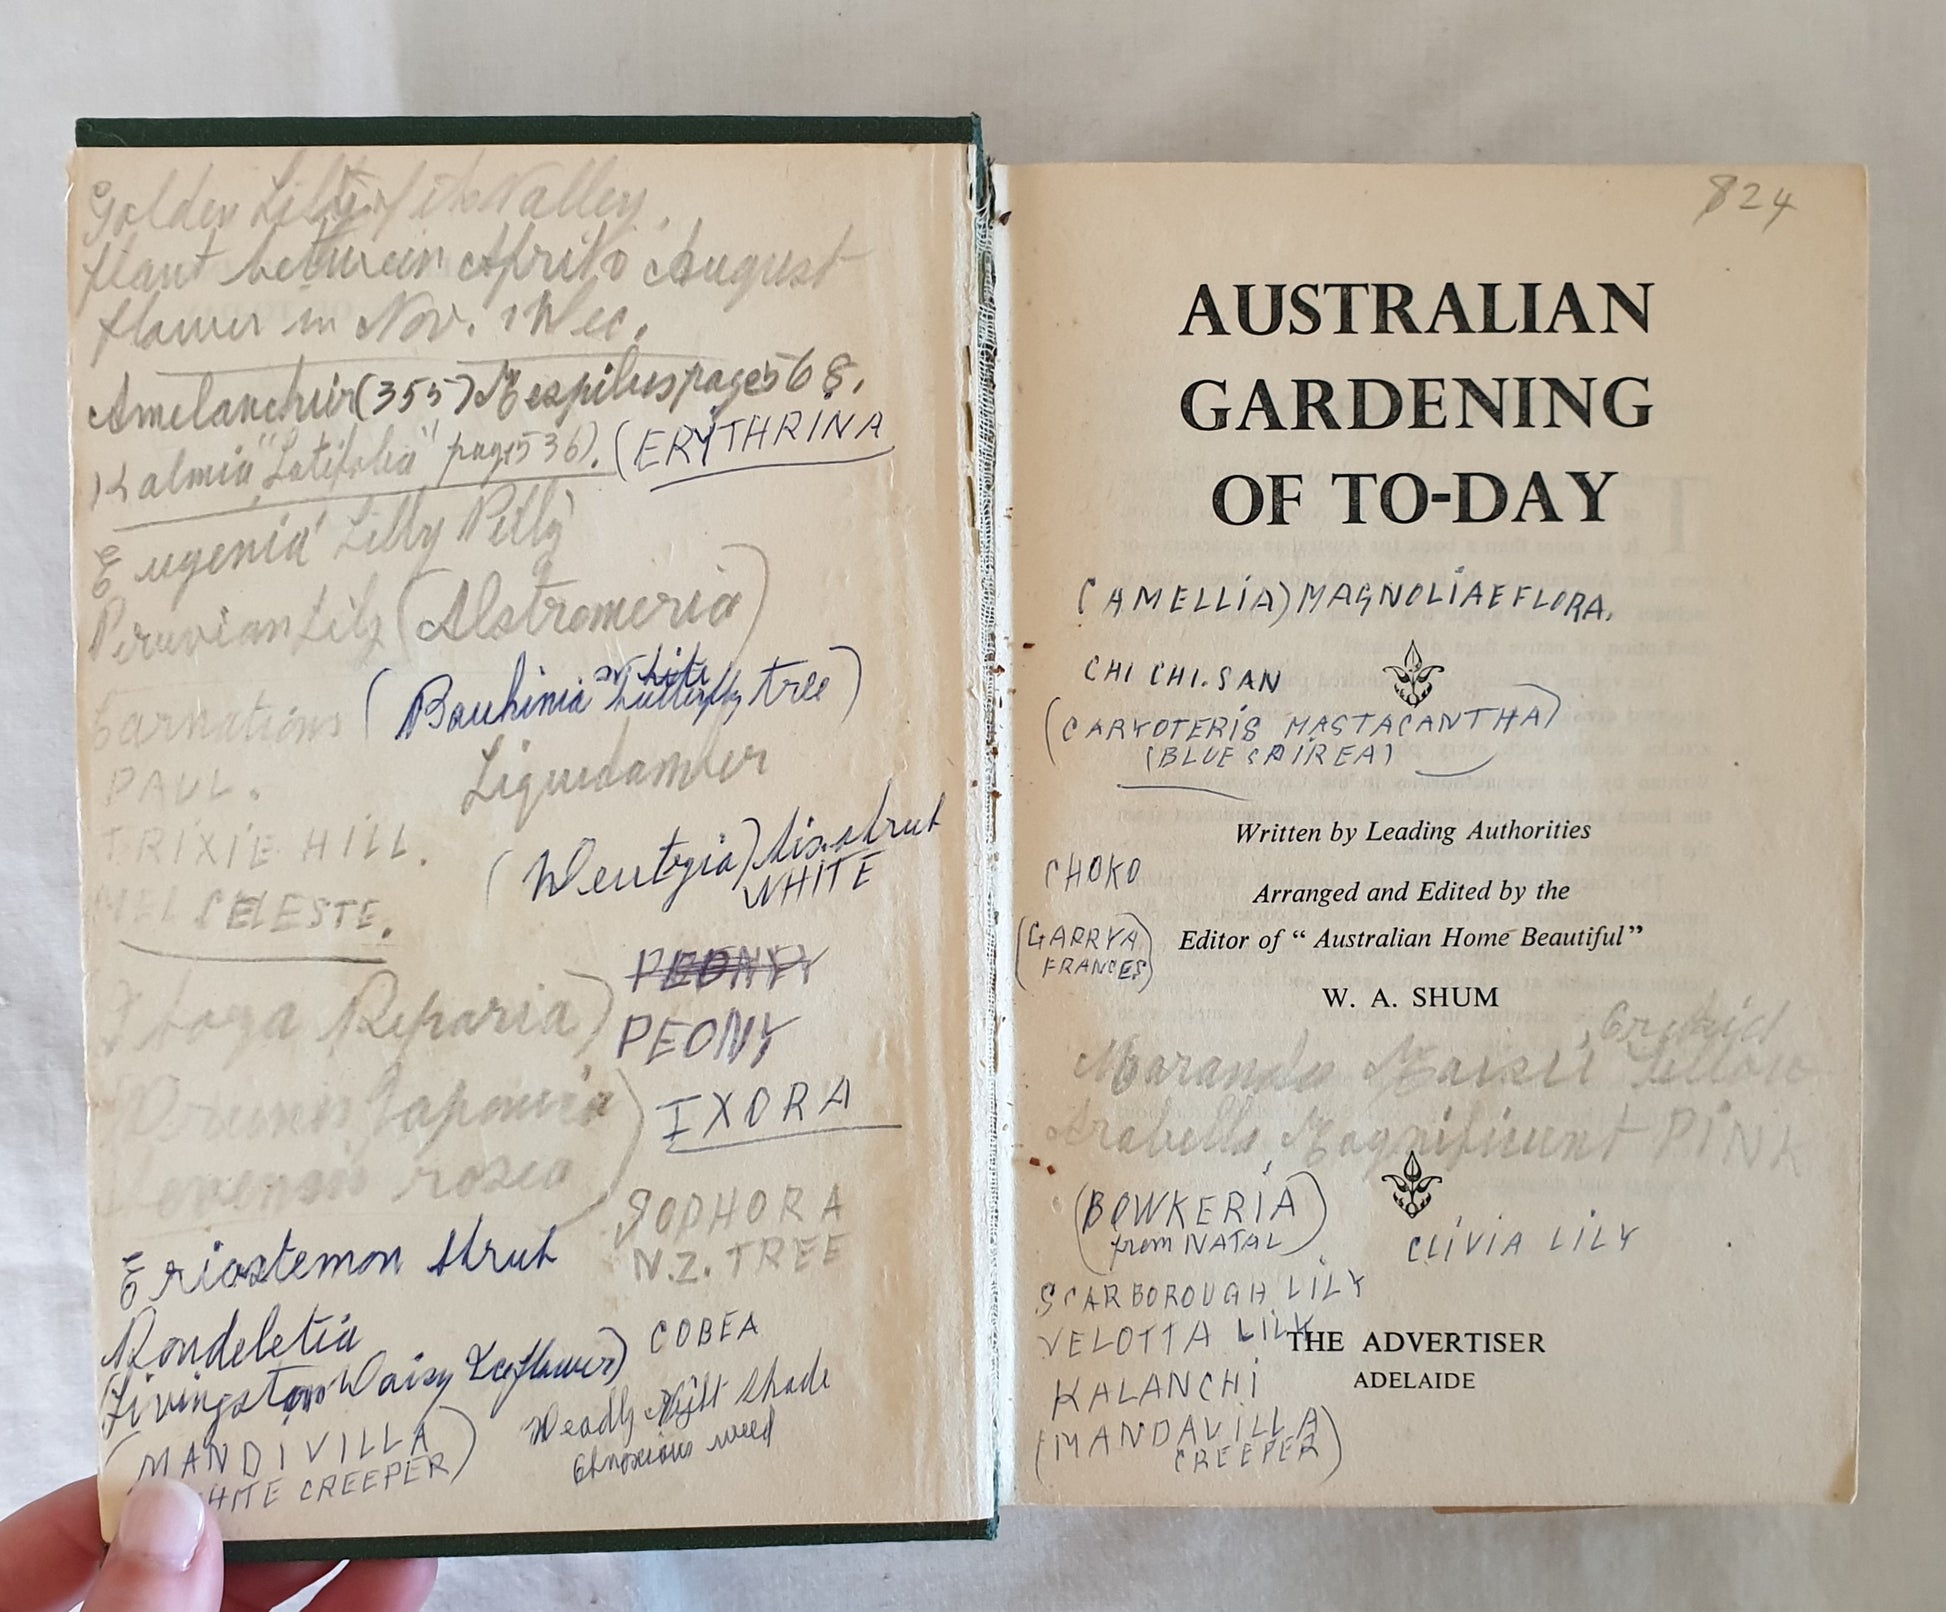 Golden Lily of the Valley.
plant between April & August
flower in Nov. & Dec.
Amelanchier (355) Mespilus page 568.
Kalmia "Latifolia" page 536). (ERYTHRINA
Eugenia' Lilly Pilly
Peruvian Lily (Alstromeria)
Carnations (Bauhinia white butterfly tree)
PAUL. Liquidamber
TRIXIE HILL.
(Deutzia) dis. shrub
WHITE
CELESTE.
PEONY
PEONY
IXORA
Prunus Japonica
rosea
SOPHORA
N.Z. TREE
Eriostemon shrub
Rondeletia
COBEA
(Livingston Daisy Iceflower)
Deadly Night Shade
Obnoxious weed
(MANDIVILLA
WHITE CREEPER)
824
AUSTRALIAN
GARDENING
OF TO-DAY
(CAMELLIA) MAGNOLIAEFLORA.
CHI CHI. SAN
(CARYOTERIS MASTACANTHA)
(BLUE SPIREA)
Written by Leading Authorities
CHOKO
Arranged and Edited by the
(GARRYA
FRANCES)
Editor of "Australian Home Beautiful"
W. A. SHUM
Orchid
Yellow
Arabella Magnificent PINK
(BOWKERIA
from NATAL)
CLIVIA LILY
SCARBOROUGH LILY
VELOTTA LILY
THE ADVERTISER
ADELAIDE
KALANCHI
(MANDAVILLA
CREEPER)